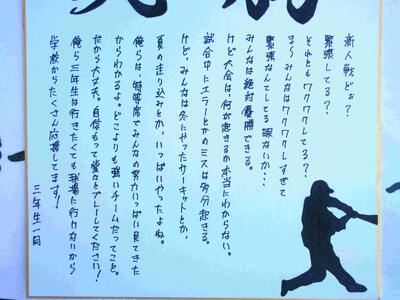 新人戦どぉ？
緊張してる？
それともワクワクしてる？
ま〜みんなはワクワクしすぎて
緊張なんてしてる暇ないか…
みんなは絶対優勝できる。
けど大会は、何が起きるか本当にわからない。
試合中にエラーとかのミスは多分起きる。
けど、みんなは冬にやったサーキットとか、
夏の走り込みとか、いっぱいやったよね。
俺らは、特等席でみんなの努力いっぱい見てきた
からわかるよ。どこよりも強いチームだってこと。
だから大丈夫。自信もって堂々とプレーしてください！
俺ら三年生は行きたくても球場に行けないから
学校からたくさん応援してます！
三年生一同